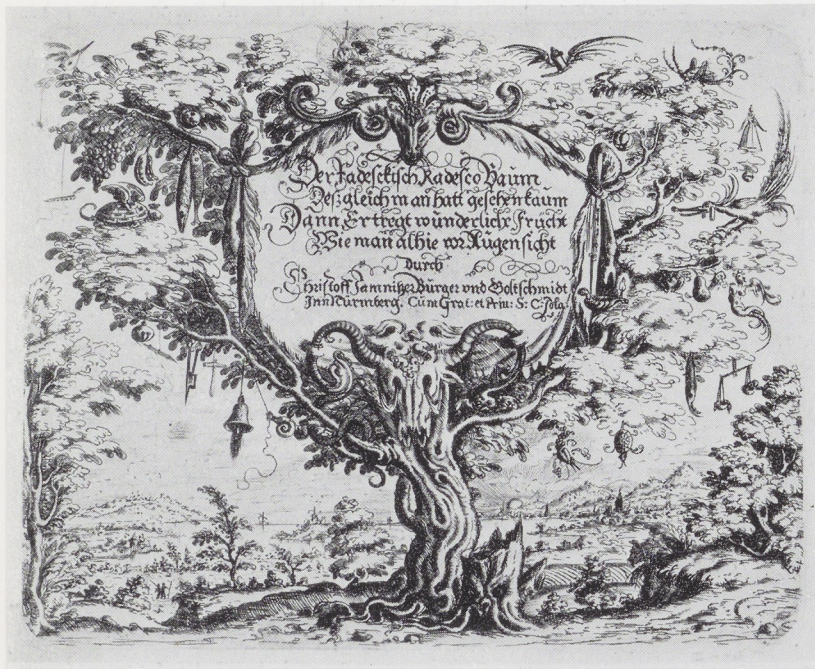 Der Fadesckisch Radesco Baum
Deßgleich man hatt gesehen kaum
Dann, Er tregt wunderliche Frücht
Wie man alhie vor Augen sicht
Durch
Christoff Jamnitzer Bürger vnd Goltschmidt
Inn Nürmberg. Cum Grat: et Priu: S: C: